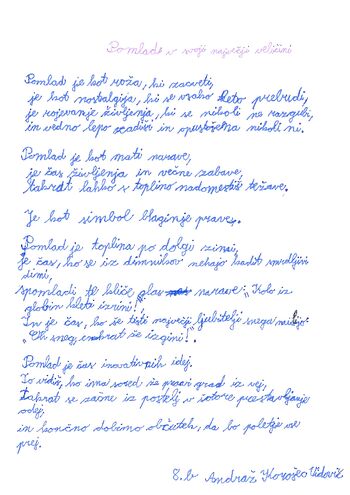 Pomlad v svoji največji veličini
Pomlad je kot roža, ki zacveti,
je kot nostalgija, ki se vsako leto prebudi,
je rojevanje življenja, ki se nikoli ne razgubi,
in vedno lepo zadiši in opustošena nikoli ni.
Pomlad je kot mati narave,
je čas življenja in večne zabave,
takrat lahko s toplino nadomestiš težave.
Je kot simbol blaginje prave.
Pomlad je toplina po dolgi zimi,
je čas, ko se iz dimnikov nehajo kaditi smrdljivi
dimi,
spomladi te kliče glas narave: "Kolo iz
globin kleti izrini!",
In je čas, ko še tisti največji ljubitelji snega
"Eh sneg, enkrat že izgini!".
Pomlad je čas inovativnih idej.
To vidiš, ko ima sosed že pravi grad iz vej,
takrat se začne iz postelj v šotore prestavljanje
odej,
in končno dobimo občutek, da bo poletje še
prej.
8.b Andraž Korošec Vidovič